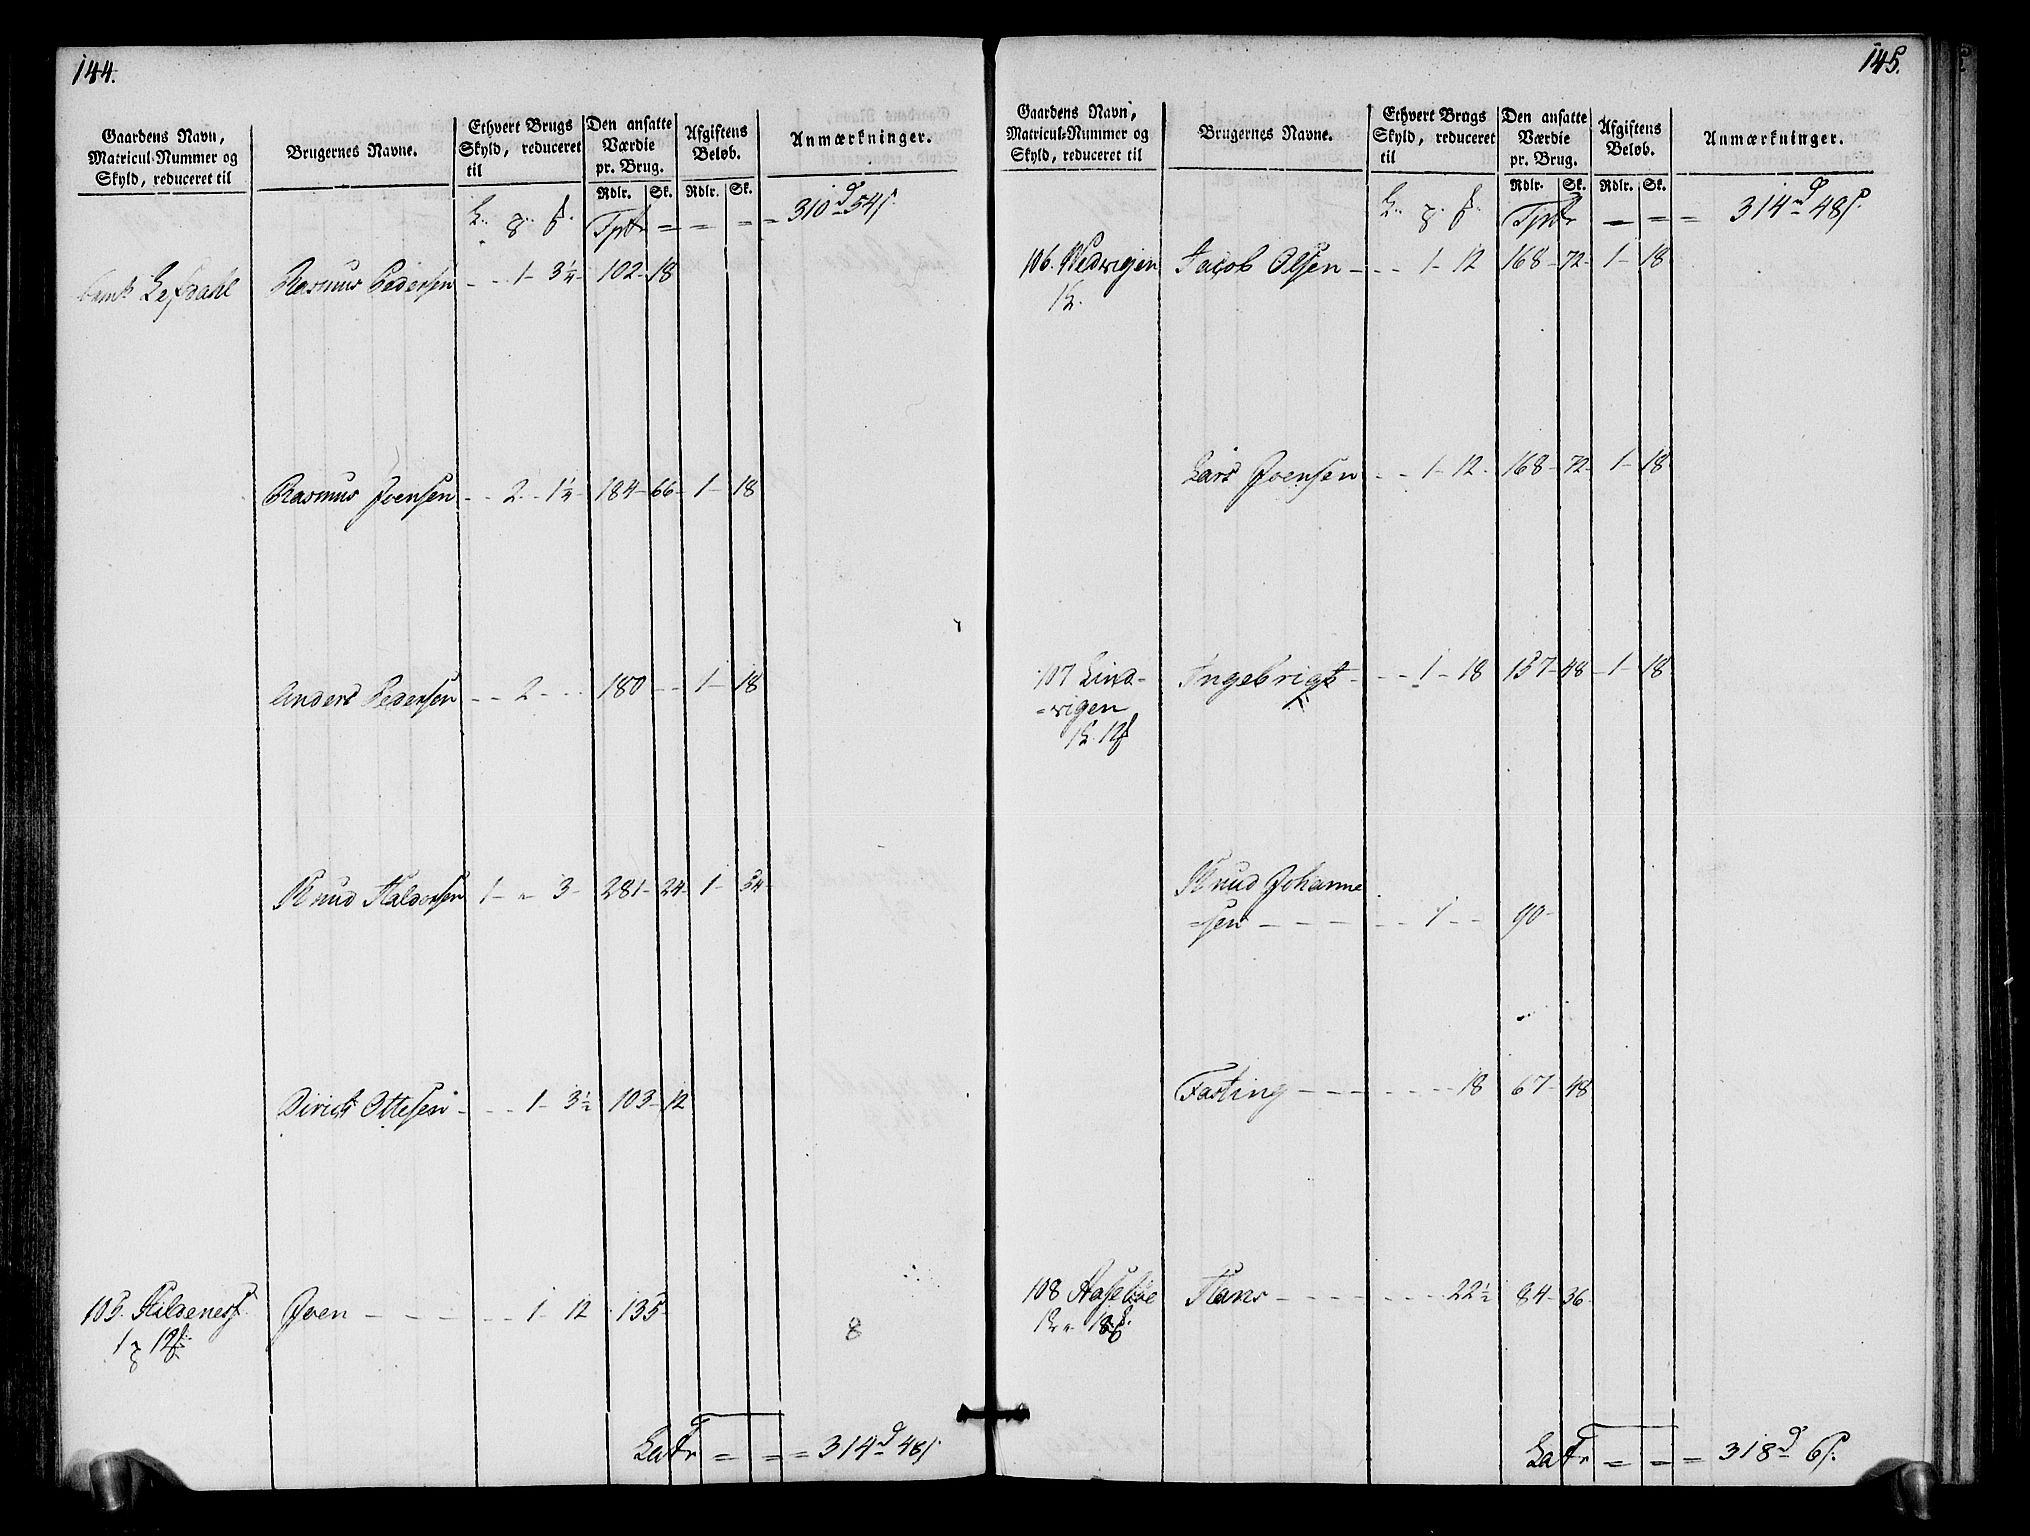 144.
Gaardens Navn, Matricul-Nummer og Skyld, reduceret til
Brugernes Navne.
Ethvert Brugs Skyld, reduceret til
Den ansatte Værdie pr. Brug.
Afgiftens Beløb.
Anmærkninger.
Rdlr. Sk. Rdlr. Sk.
Tptr = = = = 310 d 54 s.
Lefdahl Rasmus Pedersen - - 1 - 3 1/4 - 102 - 18
Rasmus Joensen - - 2 - 1 1/4 - 184 - 66 - 1 - 18
Anders Pedersen - - 2 - - 180 - - 1 - 18
Knud Haldorsen 1 - " 3 - 281 - 24 - 1 - 54
Dirich Ottesen - - - 1 - 3 1/2 103 - 12
105. Hildenes Joen - - - - - - 1 - 12 - 135 -
8
Latr = = = 314 d 48 s.
145.
Gaardens Navn, Matricul-Nummer og Skyld, reduceret til
Brugernes Navne.
Ethvert Brugs Skyld, reduceret til
Den ansatte Værdie pr. Brug.
Afgiftens Beløb.
Anmærkninger.
Rdlr. Sk. Rdlr. Sk.
Tptr - = = 314 d 48 s.
106. Nedvigen Jacob Olsen - - - 1 - 12 168 - 72 - 1 - 18
Lars Joensen - - 1 - 12 - 168 - 72 - 1 - 18
107 Lind- Ingebrigt - - - 1 - 18 157 - 48 - 1 - 18
= vigen
Knud Johanne
= sen - - - - - - 1 - - 90 -
Fasting - - - - - - - 18 67 - 48
108 Hans - - - - - - - 22 1/2 84 - 36
Latr = = = 318 d 6 s.